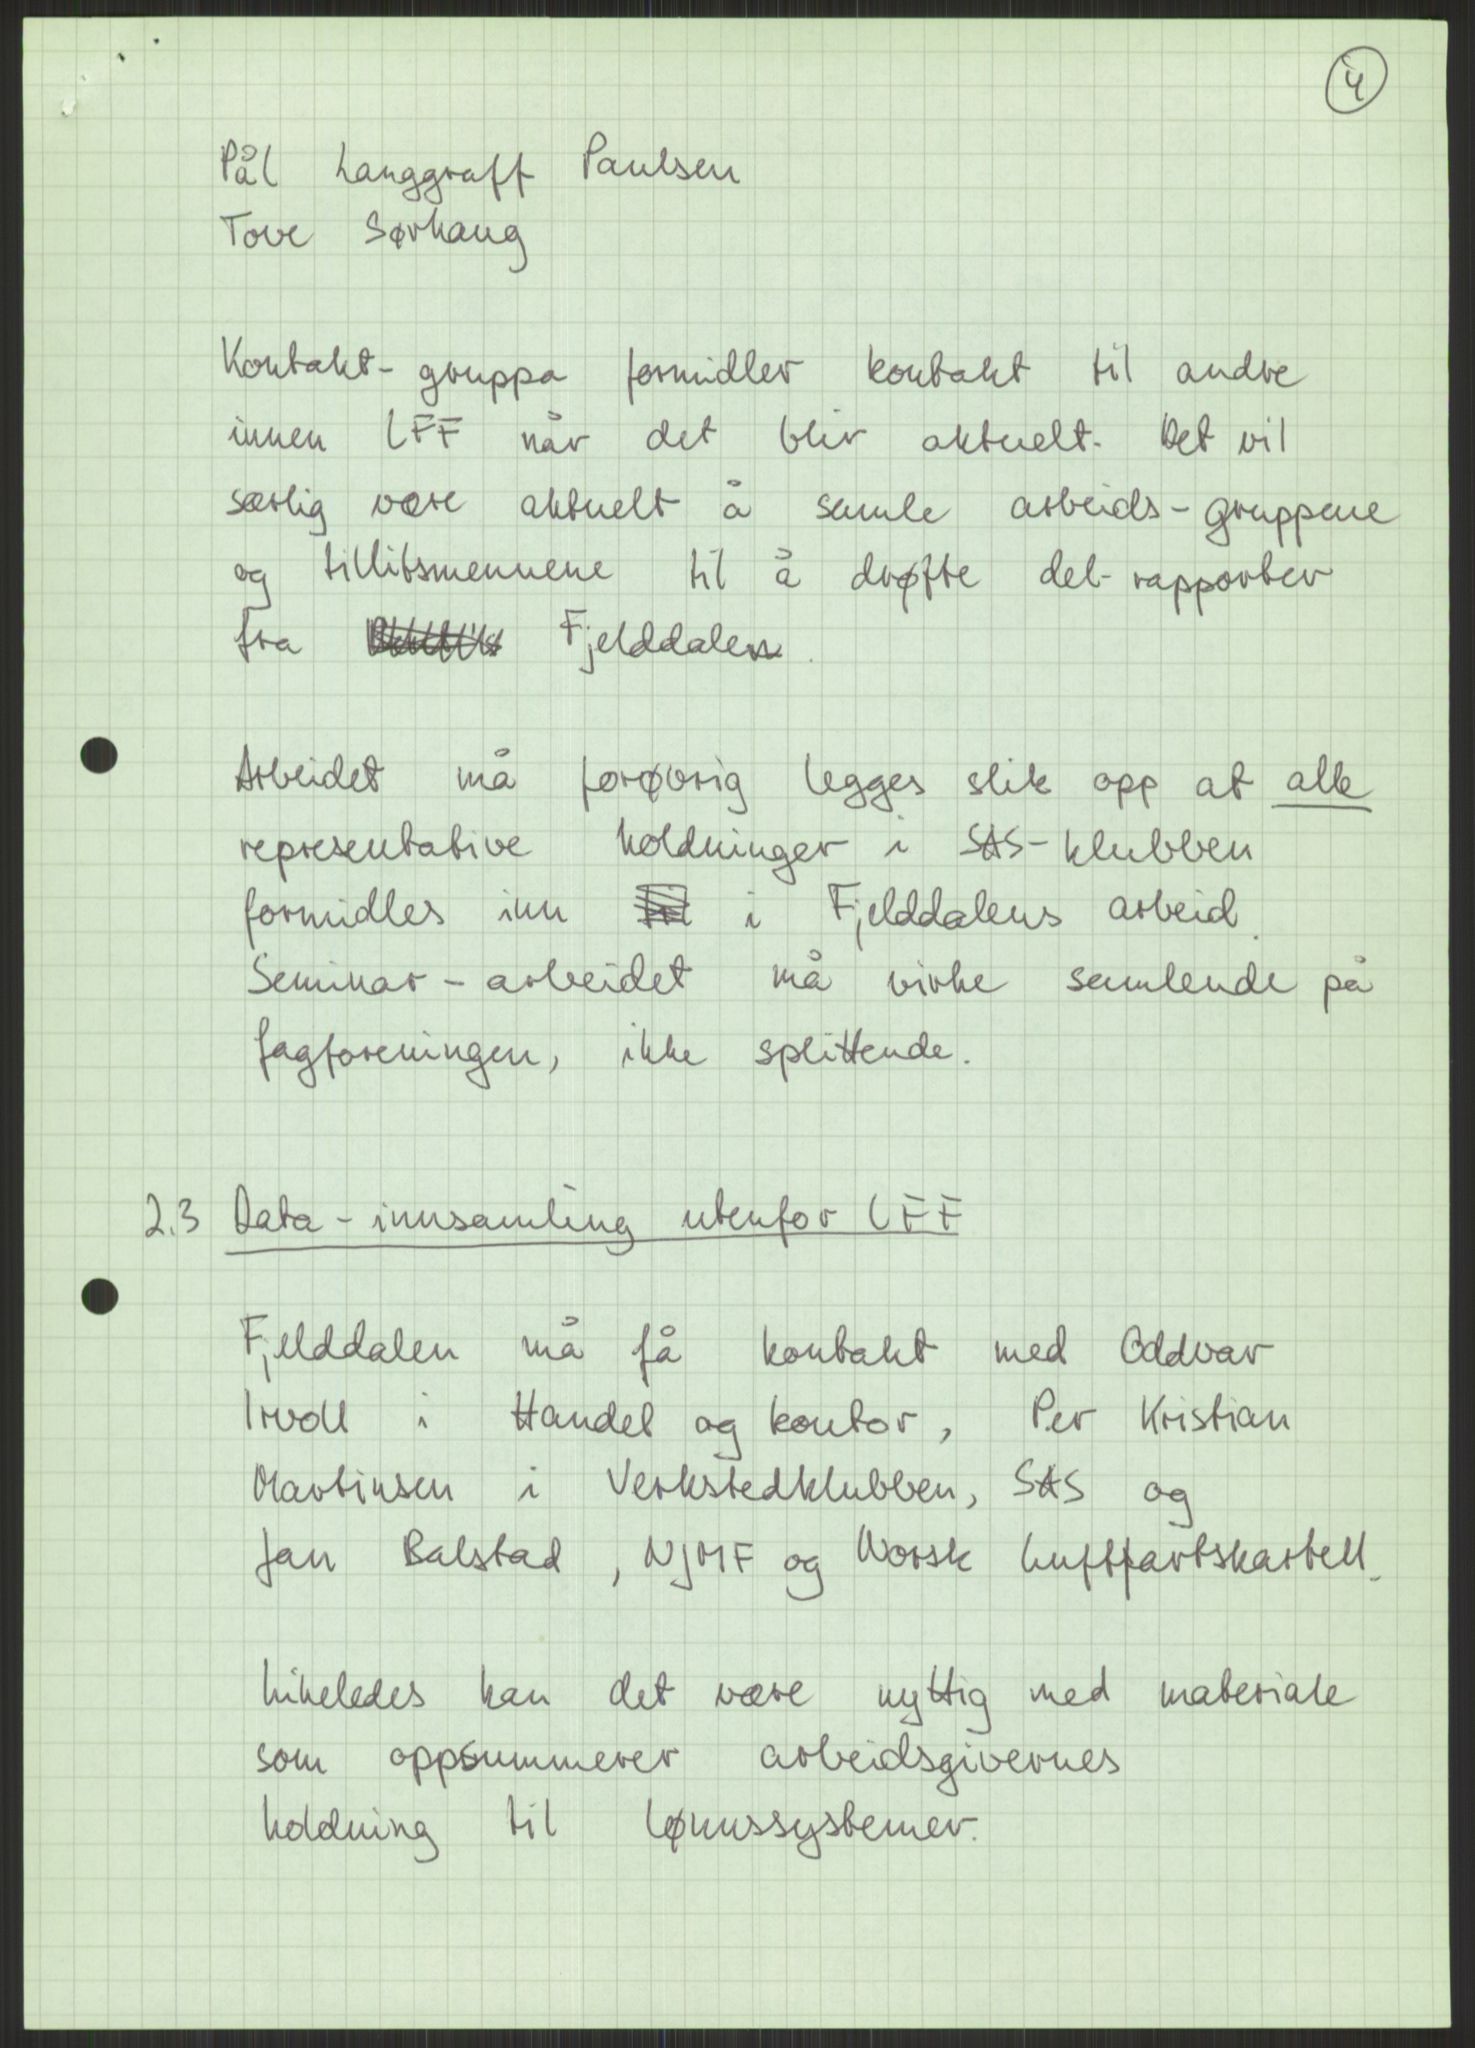 4
Pål Langgraff Paulsen
Tove Sørhaug
Kontakt-gruppa formidler kontakt til andre
innen LFF når det blir aktuelt. Det vil
særlig være aktuelt å samle arbeids-gruppene
og tillitsmennene til å drøfte del-rapporter
fra Fjelddalen.
Arbeidet må forøvrig legges slik opp at alle
representative holdninger i SAS-klubben
formidles inn i Fjelddalens arbeid.
Seminar-arbeidet må virke samlende på
fagforeningen, ikke splittende.
2.3 Data-innsamling utenfor LFF
Fjelddalen må få kontakt med Oddvar
Irvoll i Handel og kontor, Per Kristian
Martinsen i Verkstedklubben, SAS og
Jan Balstad, NJMF og Norsk Luftfartskartell.
Likeledes kan det være nyttig med materiale
som oppsummerer arbeidsgivernes
holdning til lønnssystemer.